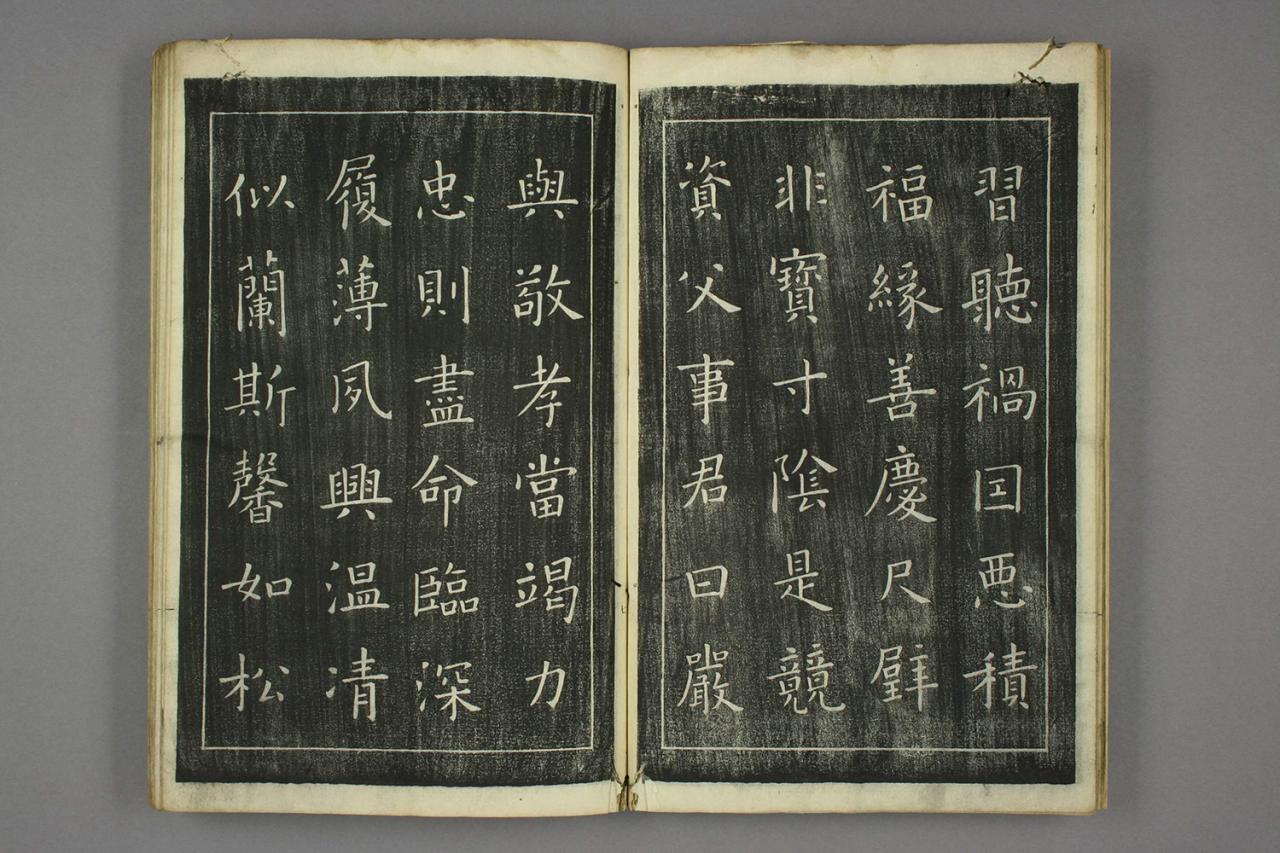 習聽禍囙惡積
福緣善慶尺璧
非寶寸陰是競
資父事君曰嚴
與敬孝當竭力
忠則盡命臨深
履薄夙興温凊
似蘭斯馨如松